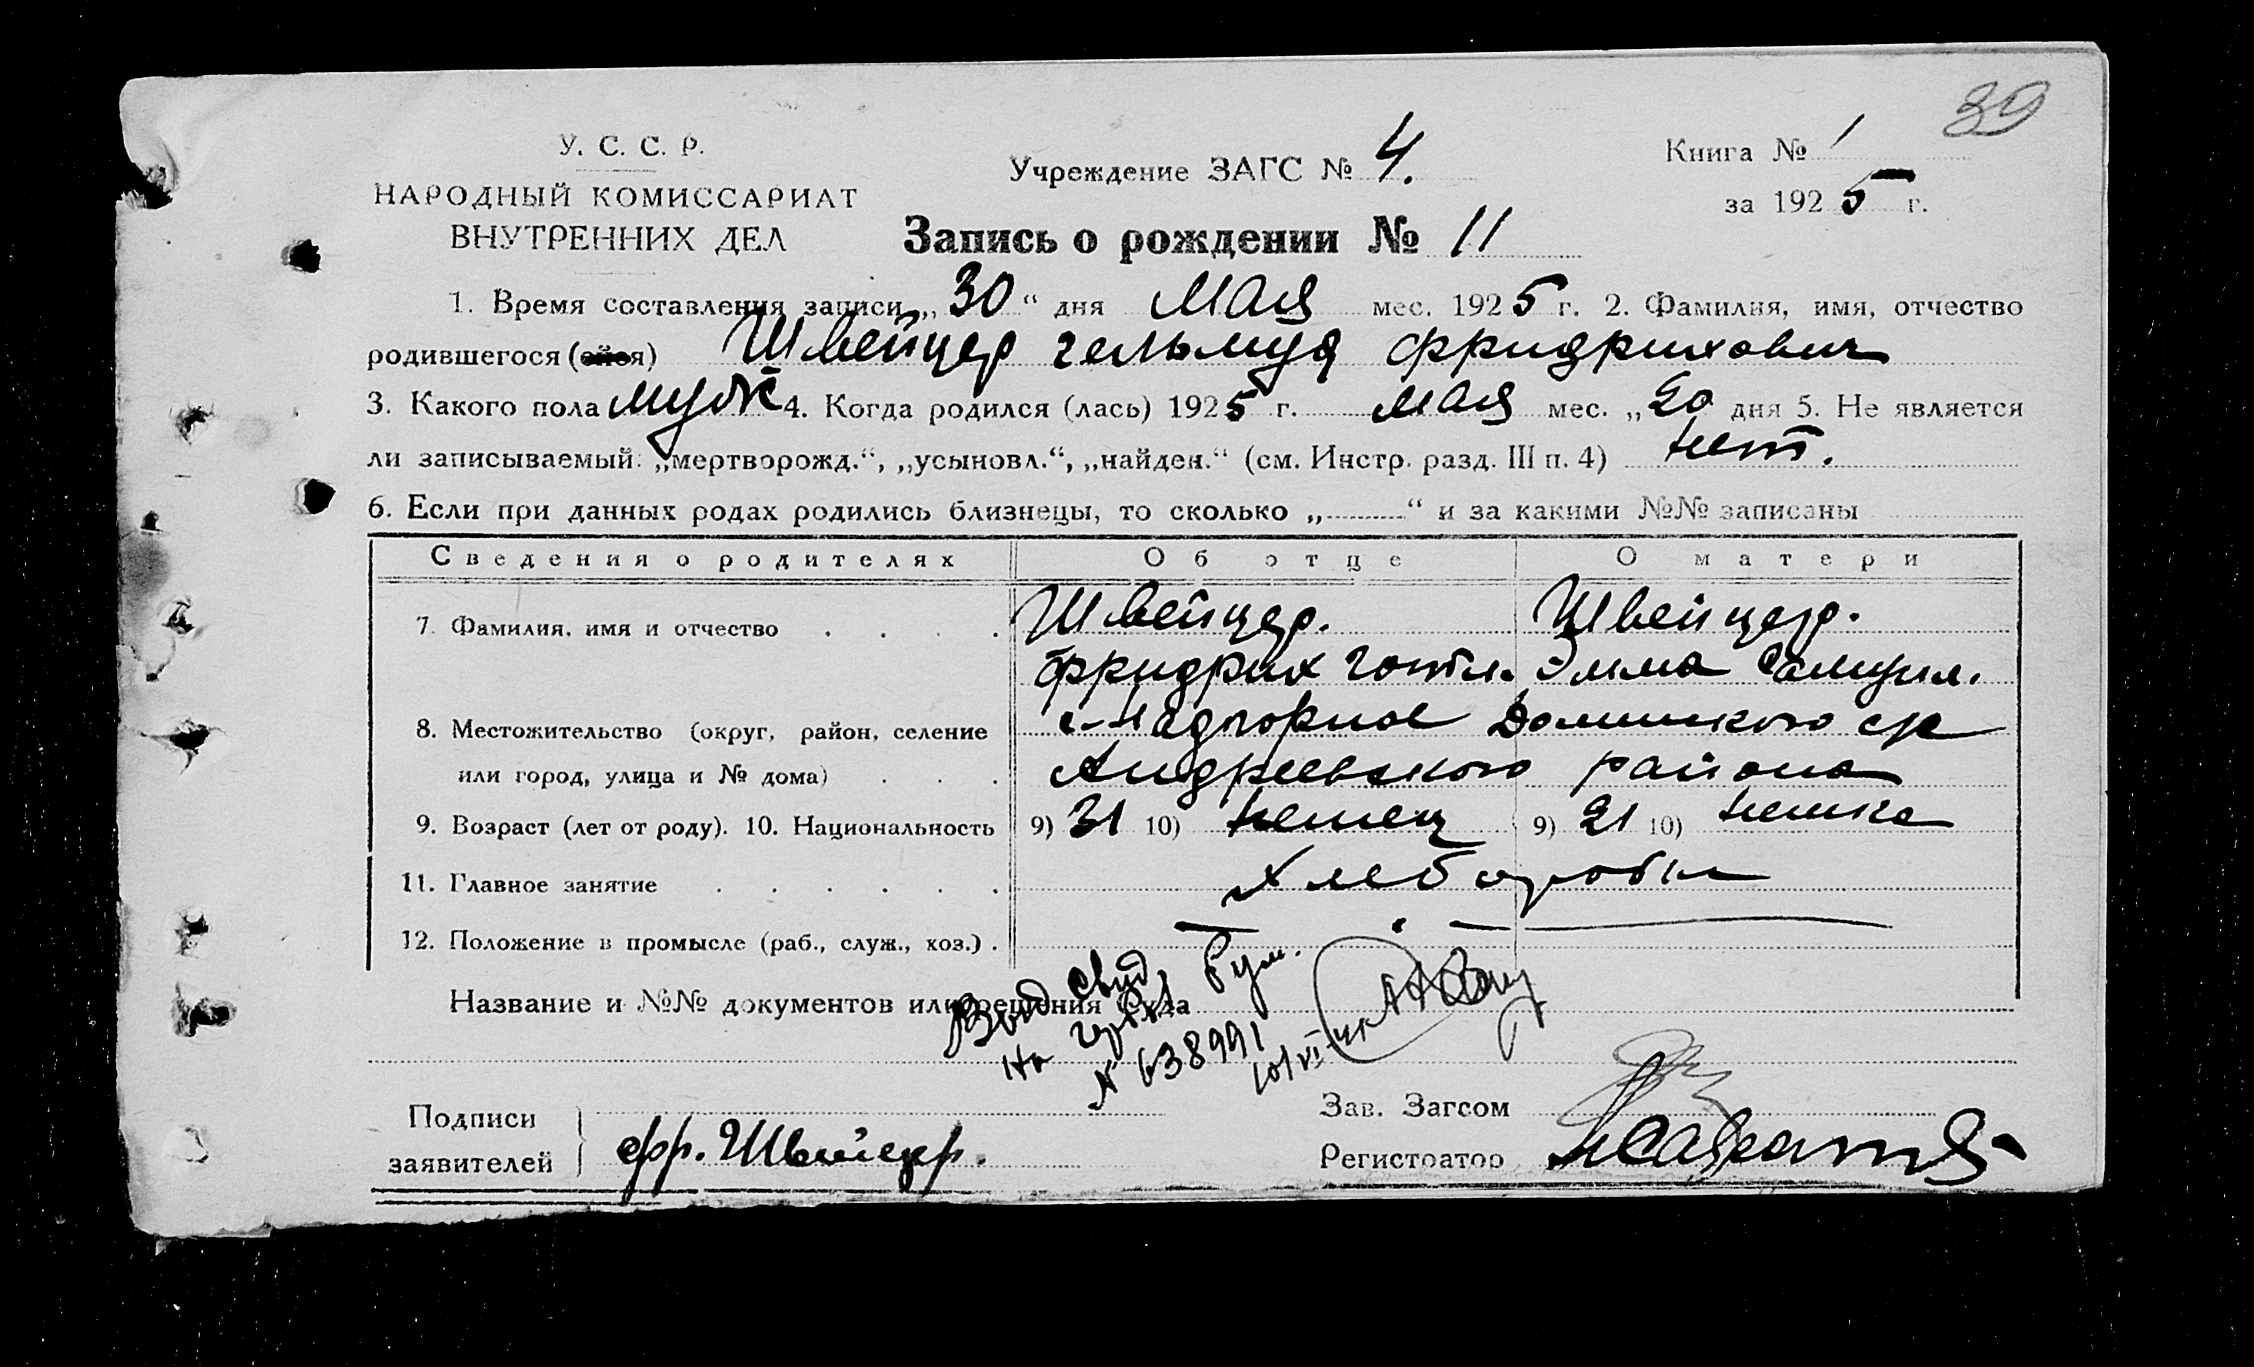 39
У. С. С. Р.
НАРОДНЫЙ КОМИССАРИАТ
ВНУТРЕННИХ ДЕЛ
Учреждение ЗАГС № 4.
Книга № 1
за 1925 г.
Запись о рождении № 11
1. Время составления записи „30“ дня мая мес. 1925 г. 2. Фамилия, имя, отчество
родившегося (ейся) Швейцер Гельмуд Фридрихович
3. Какого пола муж 4. Когда родился (лась) 1925 г. мая мес. „20 дня 5. Не является
ли записываемый: „мертворожд.“, „усыновл.“, „найден.“ (см. Инстр. разд. III п. 4) нет.
6. Если при данных родах родились близнецы, то сколько „ “ и за какими №№ записаны
Сведения о родителях Об отце О матери
7. Фамилия, имя и отчество Швейцер. Швейцер.
Фридрих Готл. Эмма Самуил.
8. Местожительство (округ, район, селение с. Надгорное
или город, улица и № дома) Андреевского района
9. Возраст (лет от роду). 10. Национальность 9) 31 10) немец 9) 21 10) немка
11. Главное занятие Хлеборобы
12. Положение в промысле (раб., служ., хоз.) .
Название и №№ документов или решения Суда
Выд свид. Рум.
на
№ 638991
Подписи
заявителей фр. Швейцер.
Зав. Загсом
Регистратор